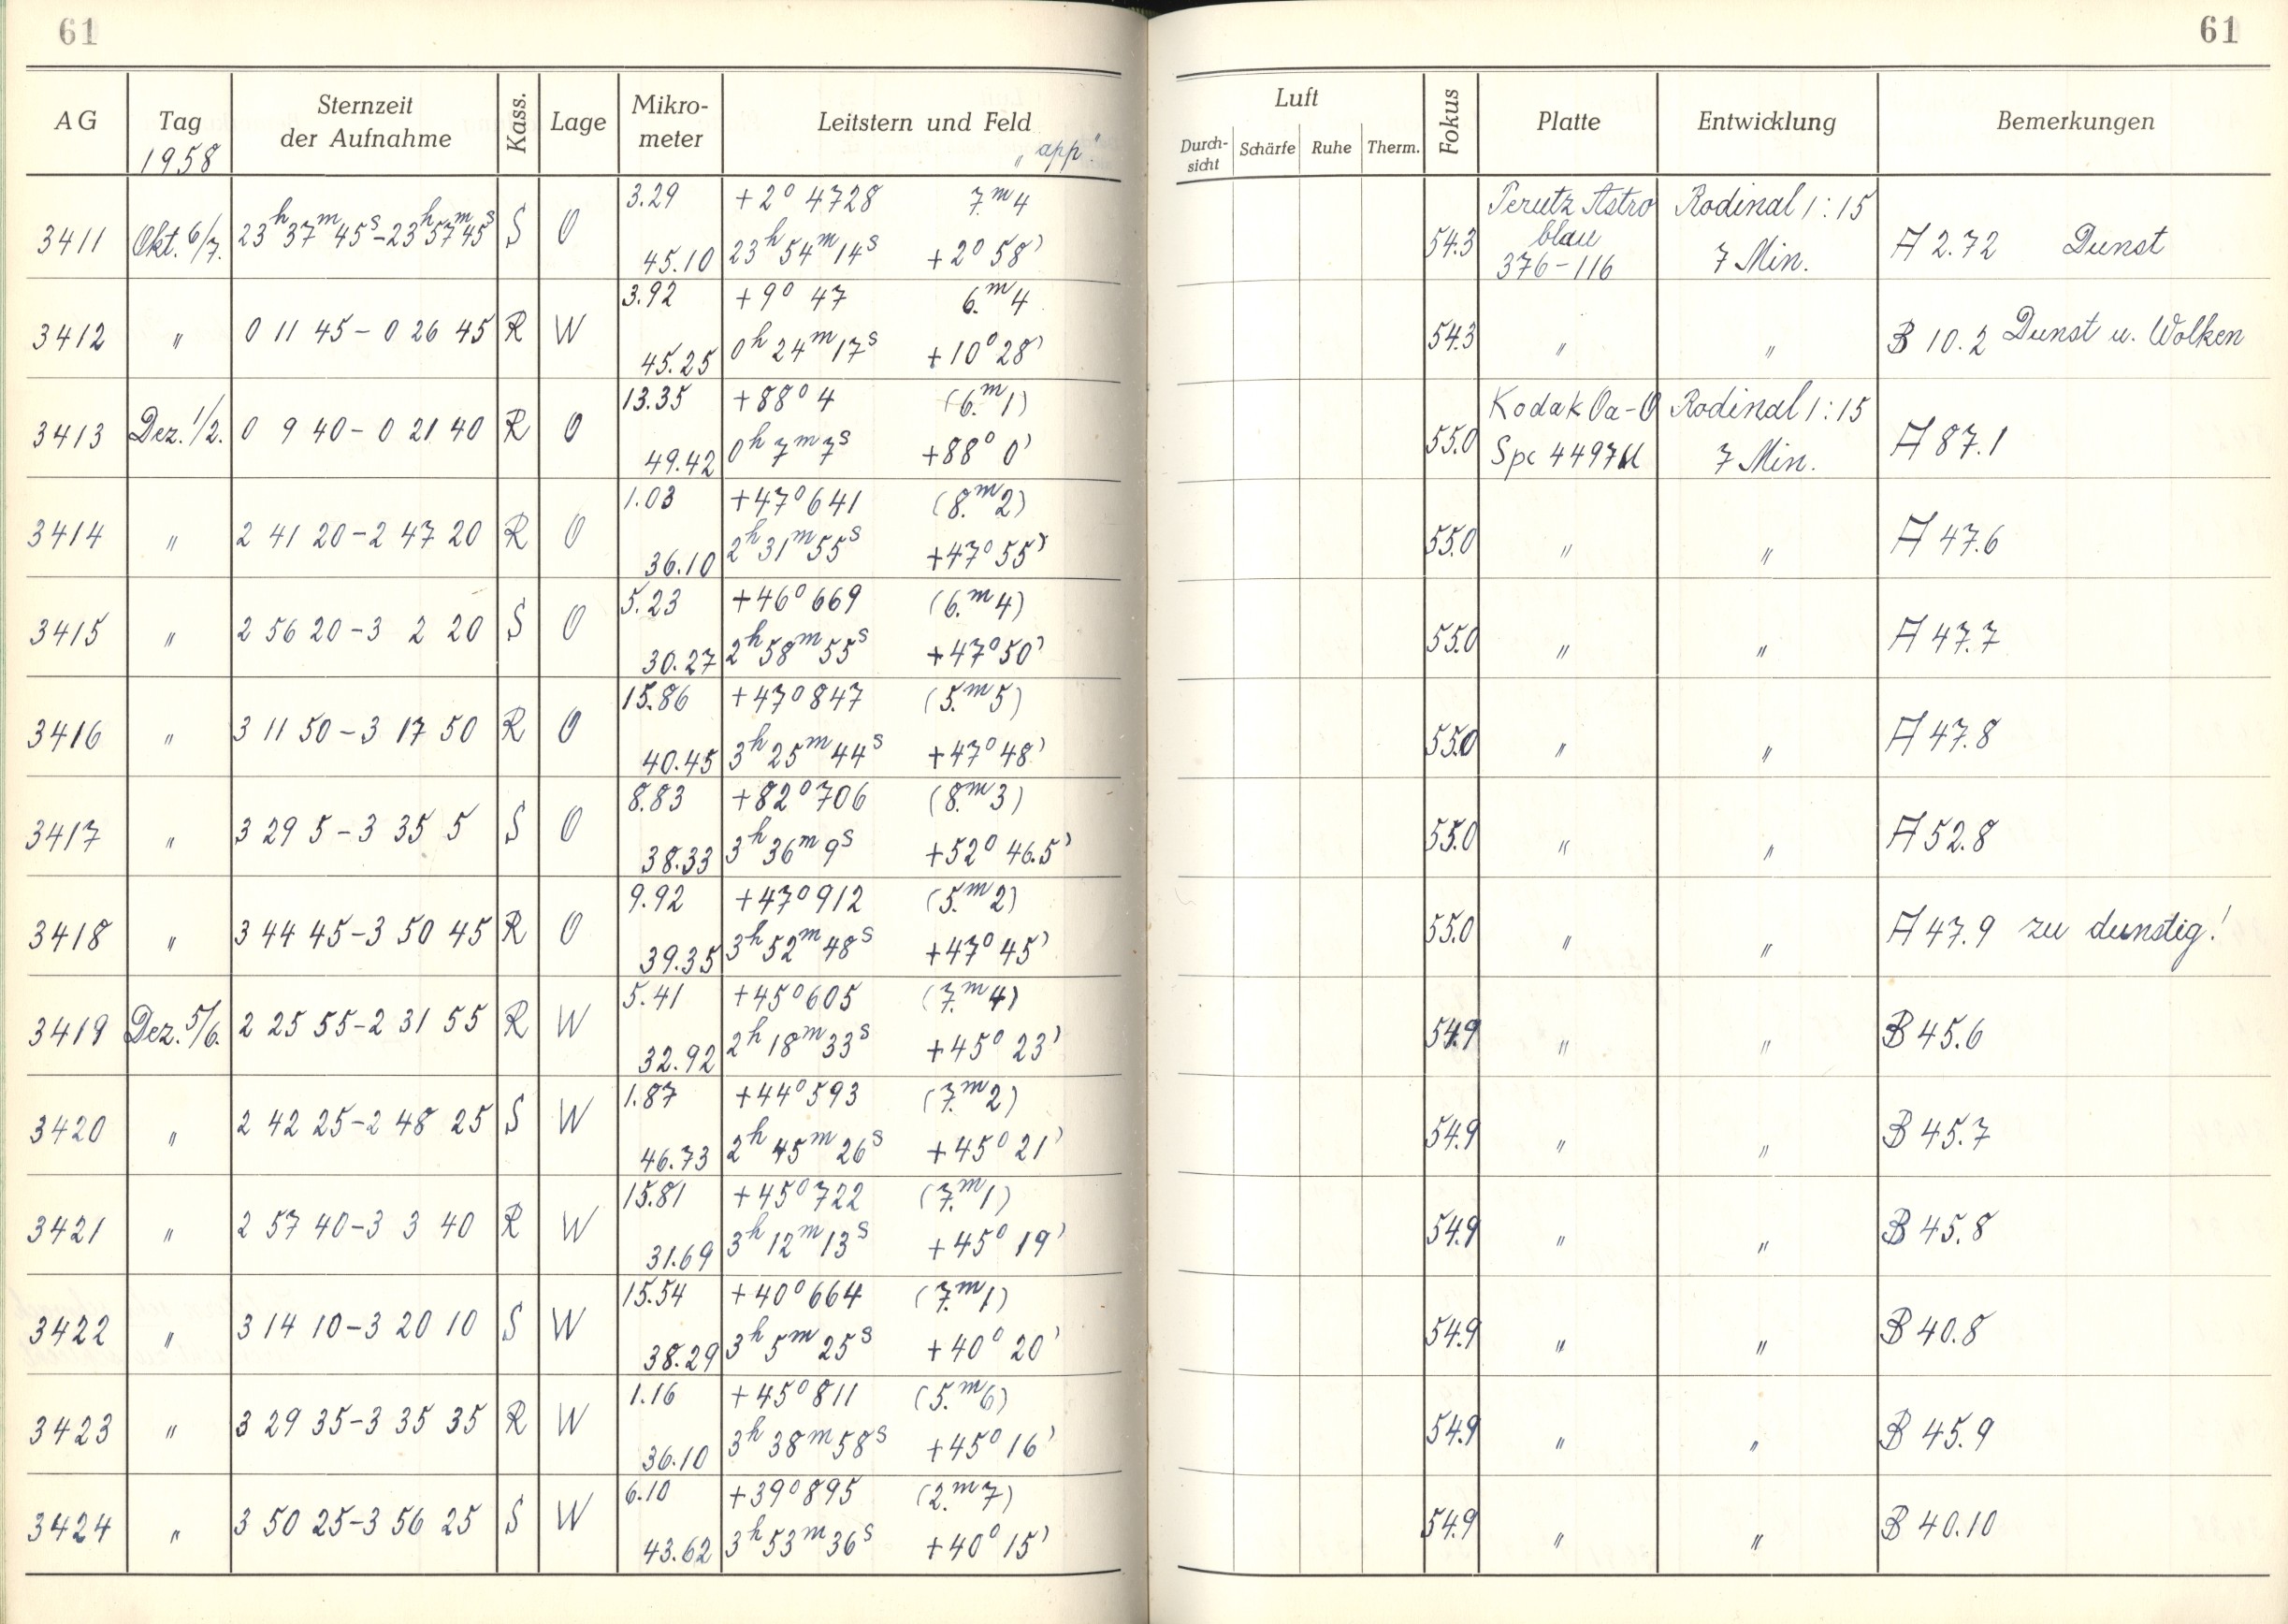 61 61
AG Tag Sternzeit der Aufnahme Kass. Lage Mikro-meter Leitstern und Feld Luft Durch-sicht Schärfe Ruhe Therm. Fokus Platte Entwicklung Bemerkungen
1958 „app“
3.29 +2° 4728 7.m4 Perutz Astro Rodinal 1:15
3411 Okt. 6/7. 23h37m45s–23h57m45s S O 54.3 blau A 2.72 Dunst
45.10 23h54m14s +2°58' 376–116 7 Min.
3.92 +9° 47 6.m4
3412 " 0 11 45–0 26 45 R W 54.3 " " B 10.2 Dunst u. Wolken
45.25 0h24m17s +10°28'
13.35 +88° 4 (6.m1) Kodak Oa-O Rodinal 1:15
3413 Dez. 1/2. 0 9 40–0 21 40 R O 55.0 A 87.1
49.42 0h7m7s +88°0' Spc 7 Min.
1.03 +47°641 (8.m2)
3414 " 2 41 20–2 47 20 R O 55.0 " " A 47.6
36.10 2h31m55s +47°55'
5.23 +46°669 (6.m4)
3415 " 2 56 20–3 2 20 S O 55.0 " " A 47.7
30.27 2h58m55s +47°50'
15.86 +47°847 (5.m5)
3416 " 3 11 50–3 17 50 R O 55.0 " " A 47.8
40.45 3h25m44s +47°48'
8.83 +82°706 (8.m3)
3417 " 3 29 5–3 35 5 S O 55.0 " " A 52.8
38.33 3h36m9s +52°46.5'
9.92 +47°912 (5.m2)
3418 " 3 44 45–3 50 45 R O 55.0 " " A 47.9 zu dunstig!
39.35 3h52m48s +47°45'
5.41 +45°605 (7.m4)
3419 Dez. 5/6. 2 25 55–2 31 55 R W 54.9 " " B 45.6
32.92 2h18m33s +45°23'
1.87 +44°593 (7.m2)
3420 " 2 42 25–2 48 25 S W 54.9 " " B 45.7
46.73 2h45m26s +45°21'
15.81 +45°722 (7.m1)
3421 " 2 57 40–3 3 40 R W 54.9 " " B 45.8
31.69 3h12m13s +45°19'
15.54 +40°664 (7.m1)
3422 " 3 14 10–3 20 10 S W 54.9 " " B 40.8
38.29 3h5m25s +40°20'
1.16 +45°811 (5.m6)
3423 " 3 29 35–3 35 35 R W 54.9 " " B 45.9
36.10 3h38m58s +45°16'
6.10 +39°895 (2.m7)
3424 " 3 50 25–3 56 25 S W 54.9 " " B 40.10
43.62 3h53m36s +40°15'